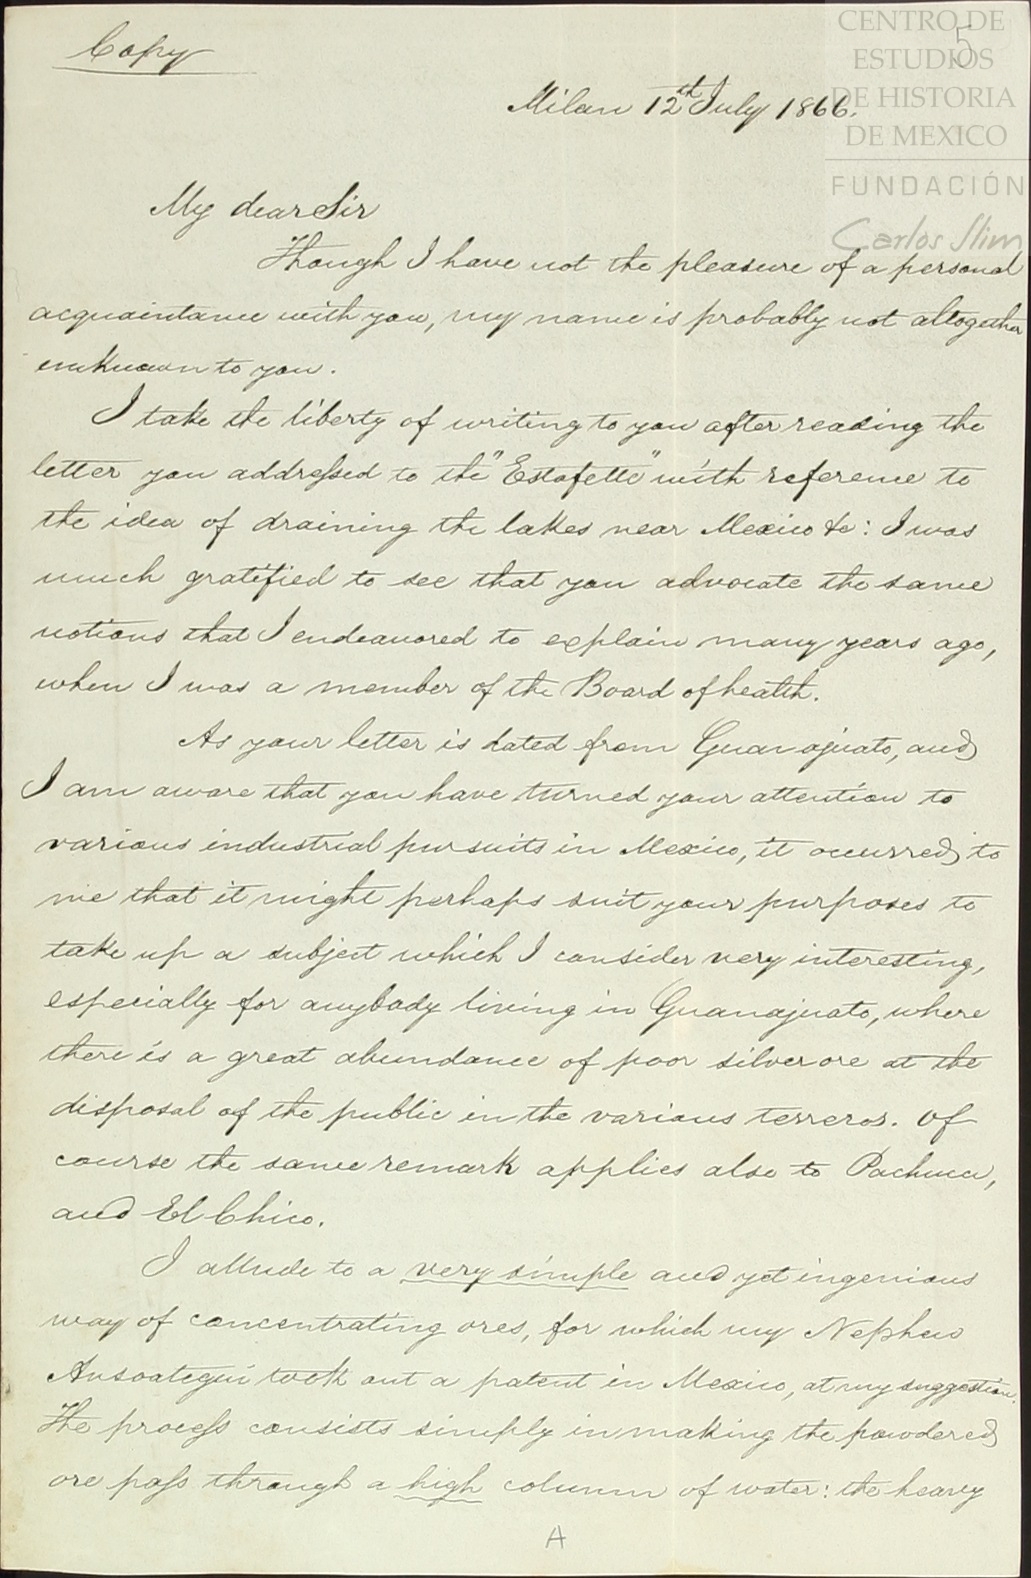 CENTRO DE
ESTUDIOS
DE HISTORIA
DE MEXICO
FUNDACIÓN
Carlos Slim
5
Copy
Milan 12th July 1866.
My dear Sir
Though I have not the pleasure of a personal
acquaintance with you, my name is probably not altogether
unknown to you.
I take the liberty of writing to you after reading the
letter you addressed to the "Estafette" with reference to
the idea of draining the lakes near Mexico &c: I was
much gratified to see that you advocate the same
notions that I endeavored to explain many years ago,
when I was a member of the Board of health.
As your letter is dated from Guanajuato, and
I am aware that you have turned your attention to
various industrial pursuits in Mexico, it occurred to
me that it might perhaps suit your purposes to
take up a subject which I consider very interesting,
especially for anybody living in Guanajuato, where
there is a great abundance of poor silver ore at the
disposal of the public in the various terreros. Of
course the same remark applies also to Pachuca,
and El Chico.
I allude to a very simple and yet ingenious
way of concentrating ores, for which my Nephew
Ansoategui took out a patent in Mexico, at my suggestion.
The process consists simply in making the powdered
ore pass through a high column of water: the heavy
A